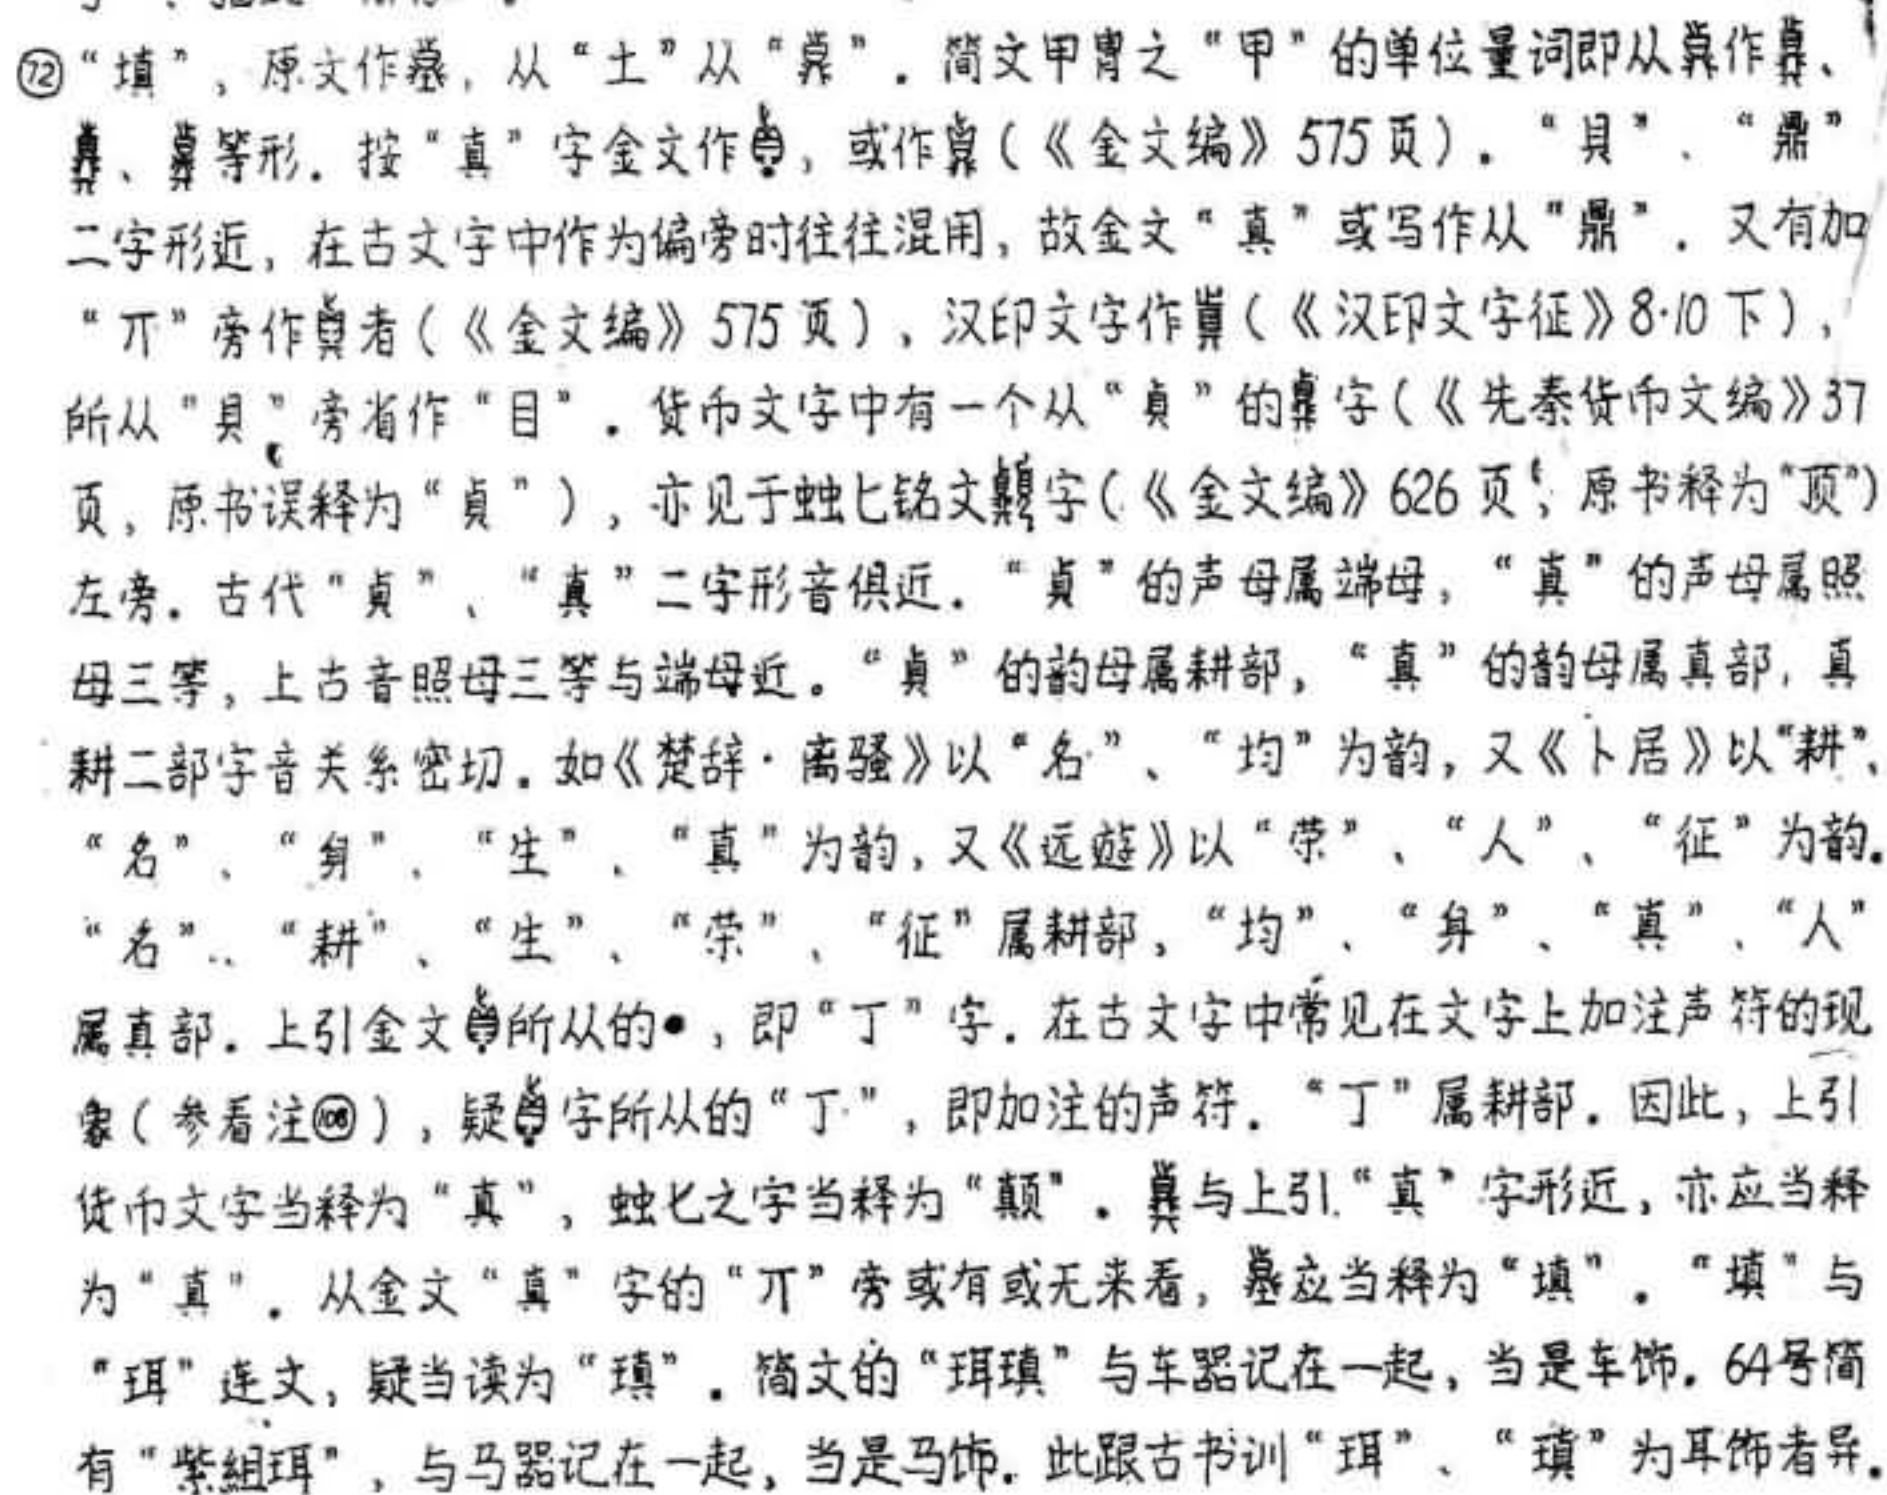 ⑫“填”，原文作，从“土”从“”．简文甲胄之“甲”的单位量词即从作、
、等形．按“真”字金文作，或作（《金文编》575页）．“貝”、“鼎”
二字形近，在古文字中作为偏旁时往往混用，故金文“真”或写作从“鼎”．又有加
“丌”旁作者（《金文编》575页），汉印文字作（《汉印文字征》8·10下），
所从“貝”旁省作“目”．货币文字中有一个从“貞”的字（《先秦货币文编》37
页，原书误释为“貞”），亦见于䖵匕铭文字（《金文编》626页，原书释为“顶”）
左旁．古代“貞”、“真”二字形音俱近．“貞”的声母属端母，“真”的声母属照
母三等，上古音照母三等与端母近。“貞”的韵母属耕部，“真”的韵母属真部，真
耕二部字音关系密切．如《楚辞·离骚》以“名”、“均”为韵，又《卜居》以“耕”、
“名”、“身”、“生”、“真”为韵，又《远遊》以“荣”、“人”、“征”为韵．
“名”、“耕”、“生”、“荣”、“征”属耕部，“均”、“身”、“真”、“人”
属真部．上引金文所从的●，即“丁”字．在古文字中常见在文字上加注声符的现
象（参看注），疑字所从的“丁”，即加注的声符．“丁”属耕部．因此，上引
货币文字当释为“真”，䖵匕之字当释为“颠”．与上引“真”字形近，亦应当释
为“真”．从金文“真”字的“丌”旁或有或无来看，应当释为“填”．“填”与
“珥”连文，疑当读为“瑱”．简文的“珥瑱”与车器记在一起，当是车饰．64号简
有“紫組珥”，与马器记在一起，当是马饰．此跟古书训“珥”、“瑱”为耳饰者异．